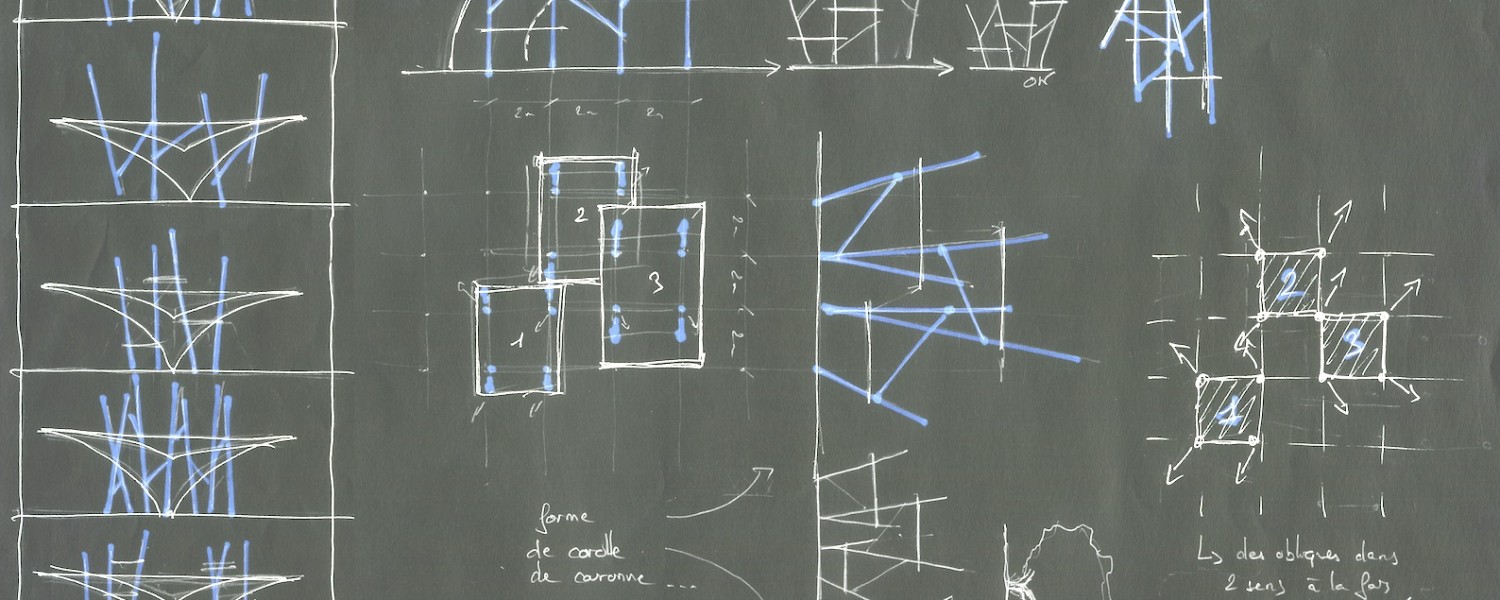 OK
2m 2m 2m
2
3
1
2m
2m
2m
2
3
1
forme
de corolle
de couronne ...
↳ des obliques dans
2 sens à la fois